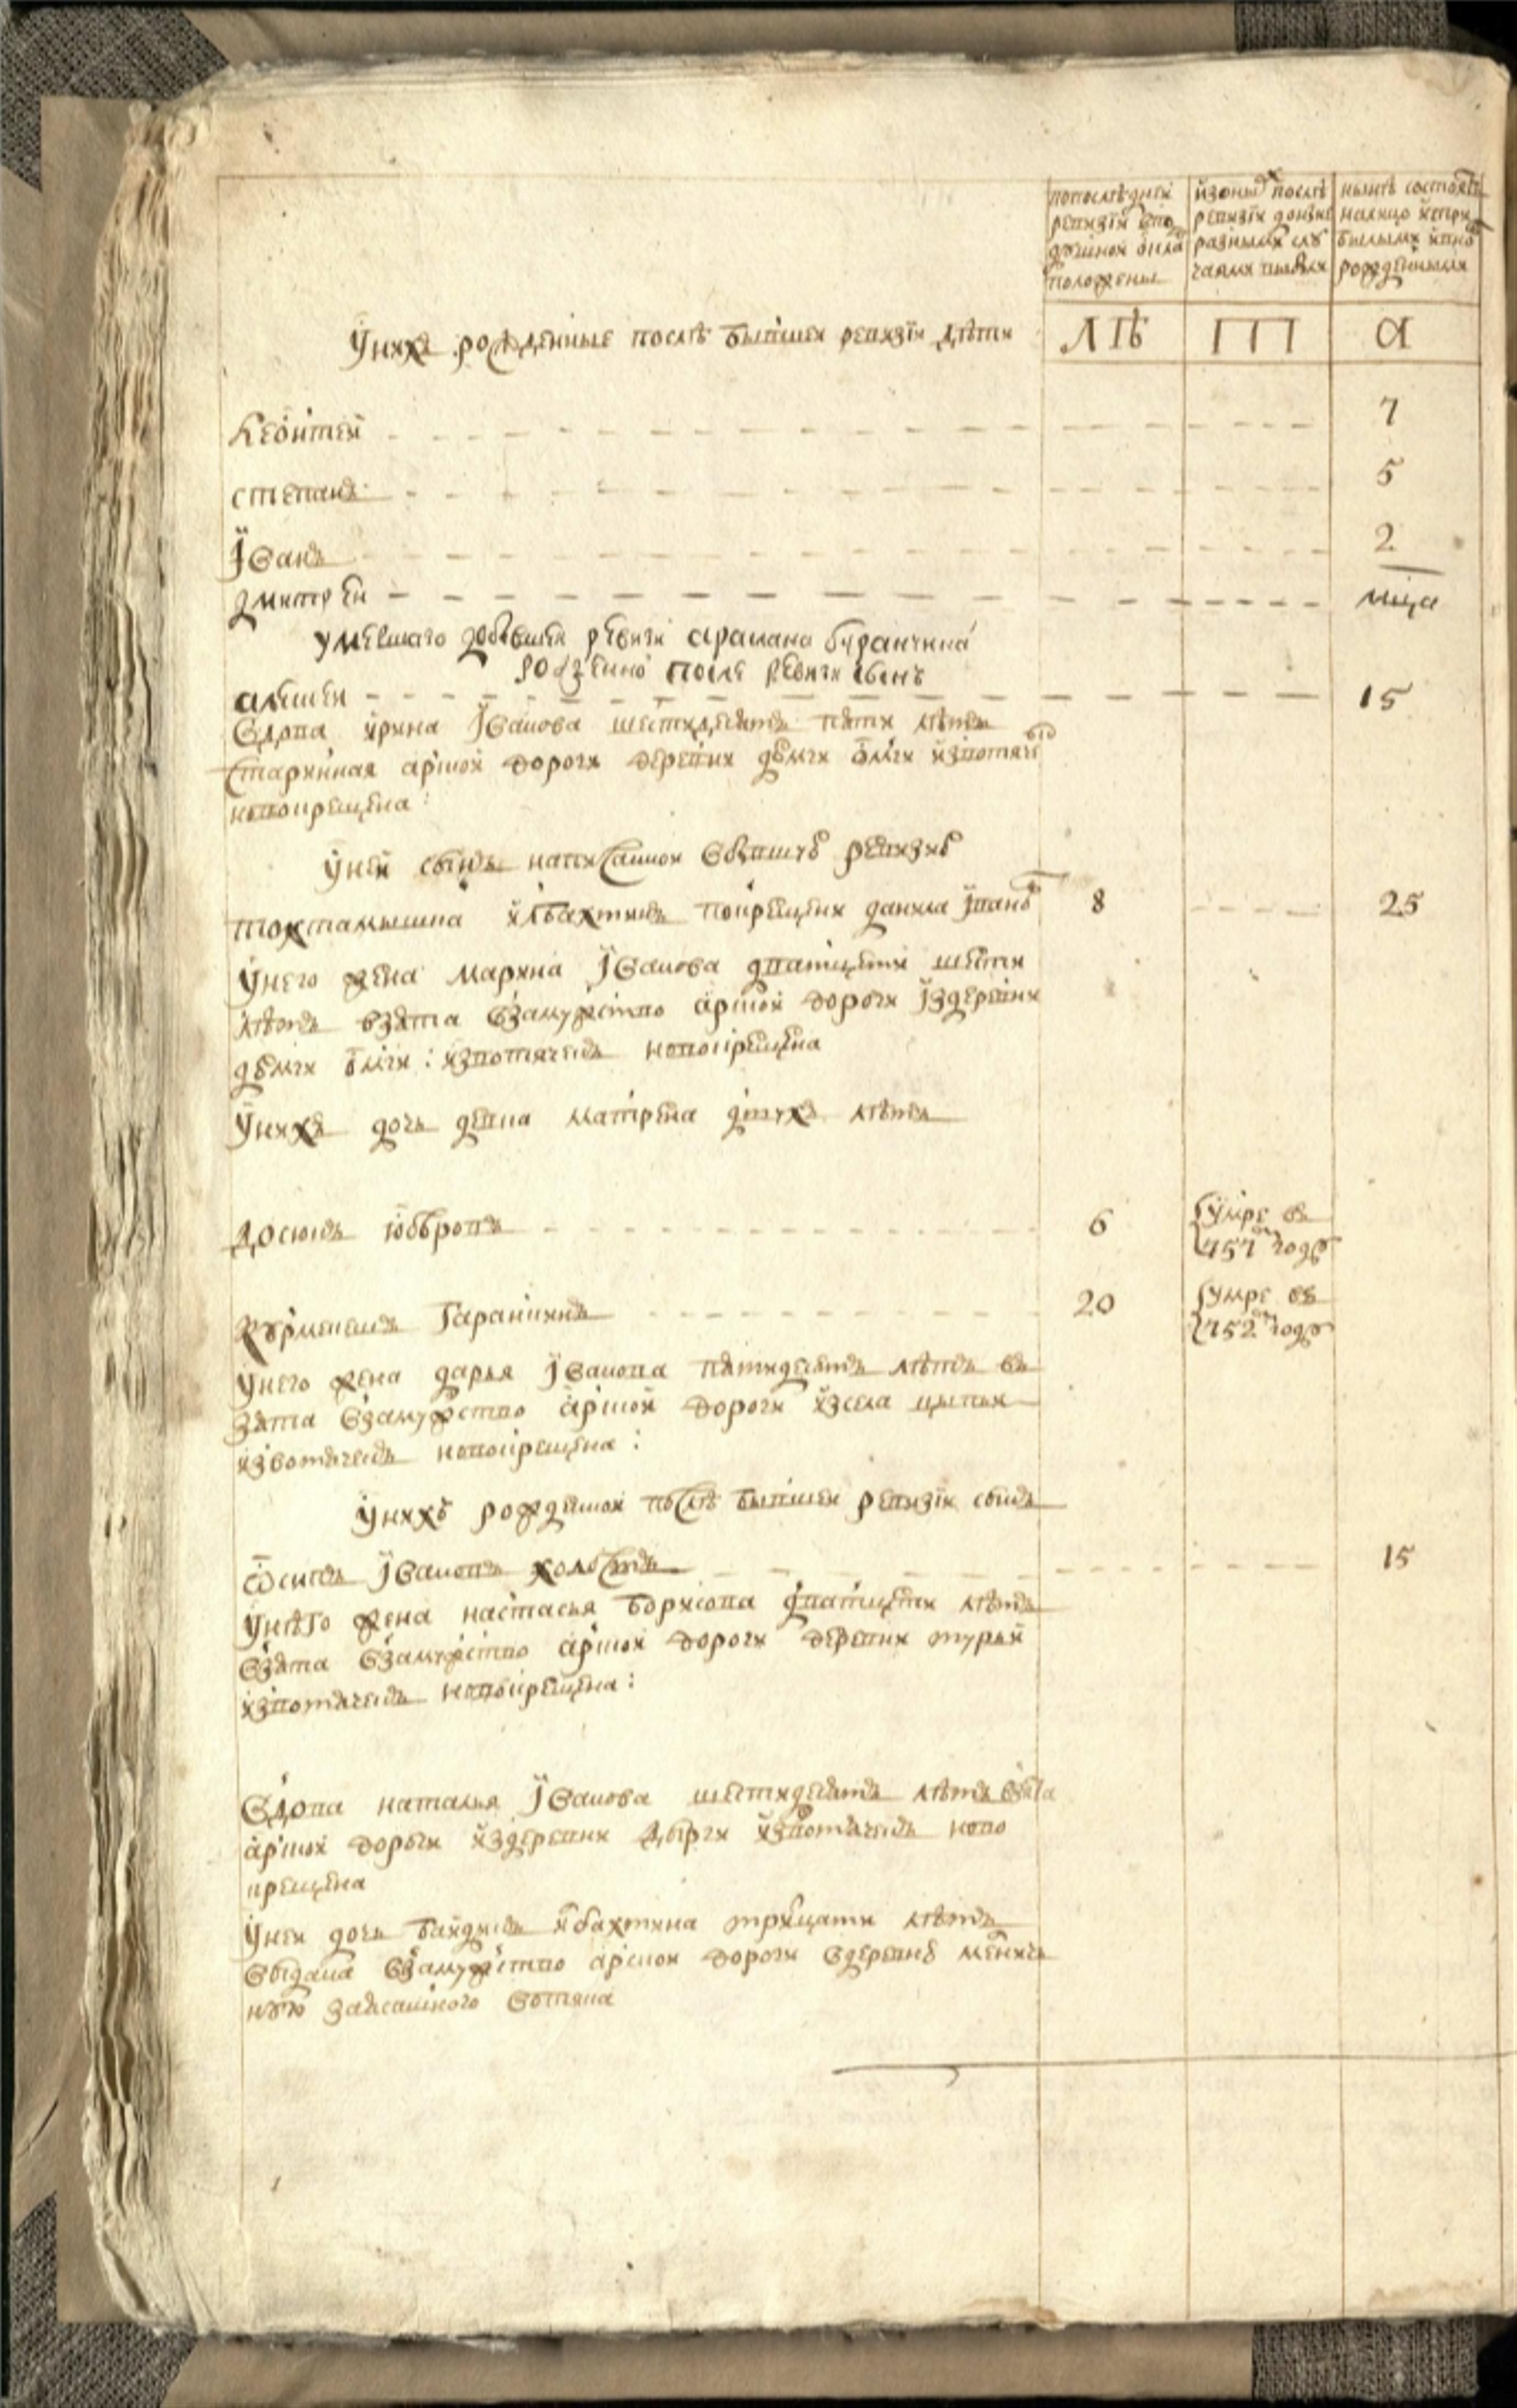 попослѣдней ревизіи впо душной окла положены
изоныхъ послѣ ревизіи донынѣ разными слу чаями выбыли
нынѣ состоятъ налицо исприбылыми ивновь рожденными
Унихъ рожденные послѣ бывшей ревизіи дѣти
лѣ
а
Леонтей 7
степанъ 5
Їванъ 2
дмитрей мца
умершаго добывшей ревизи аралана буранчина
рожденно после ревизи сынъ
алешей 15
Вдова ирина Їванова шестидесятъ пяти лѣтъ
старинная арской дороги деревни
новокрещена:
Уней сынъ написанной вбывшую ревизию
тохтамышка илбахтинъ покрещени данила Їванов 8 25
Унего жена марина Їванова дватцети шести
лѣтъ взята взамужство арской дороги їздеревни
извотяченъ новокрещена
Унихъ дочь девка матрена двухъ лѣтъ
досюкъ 6 умре въ 757м году
Курмекешъ Гаранкинъ 20 умре въ 752м году
Унего жена дарья Їванова пятидесятъ лѣтъ въ
зята взамужство арской дороги изсела цыпьи
извотяченъ новокрещена:
Унихъ рожденной послѣ бывшей ревизіи сынъ
Ѿсипъ Ївановъ холостъ 15
Унѣго жена настасья борисова дватцети лѣтъ
взята взамужство арской дороги деревни турьи
извотяченъ новокрещена:
Вдова наталья Їванова шестидесятъ лѣтъ взята
арской дороги издеревни извотяченъ ново
крещена
Уней дочь илбахтина трицати лѣтъ
выдана взамужство арской дороги вдеревню
заясашного вотяка